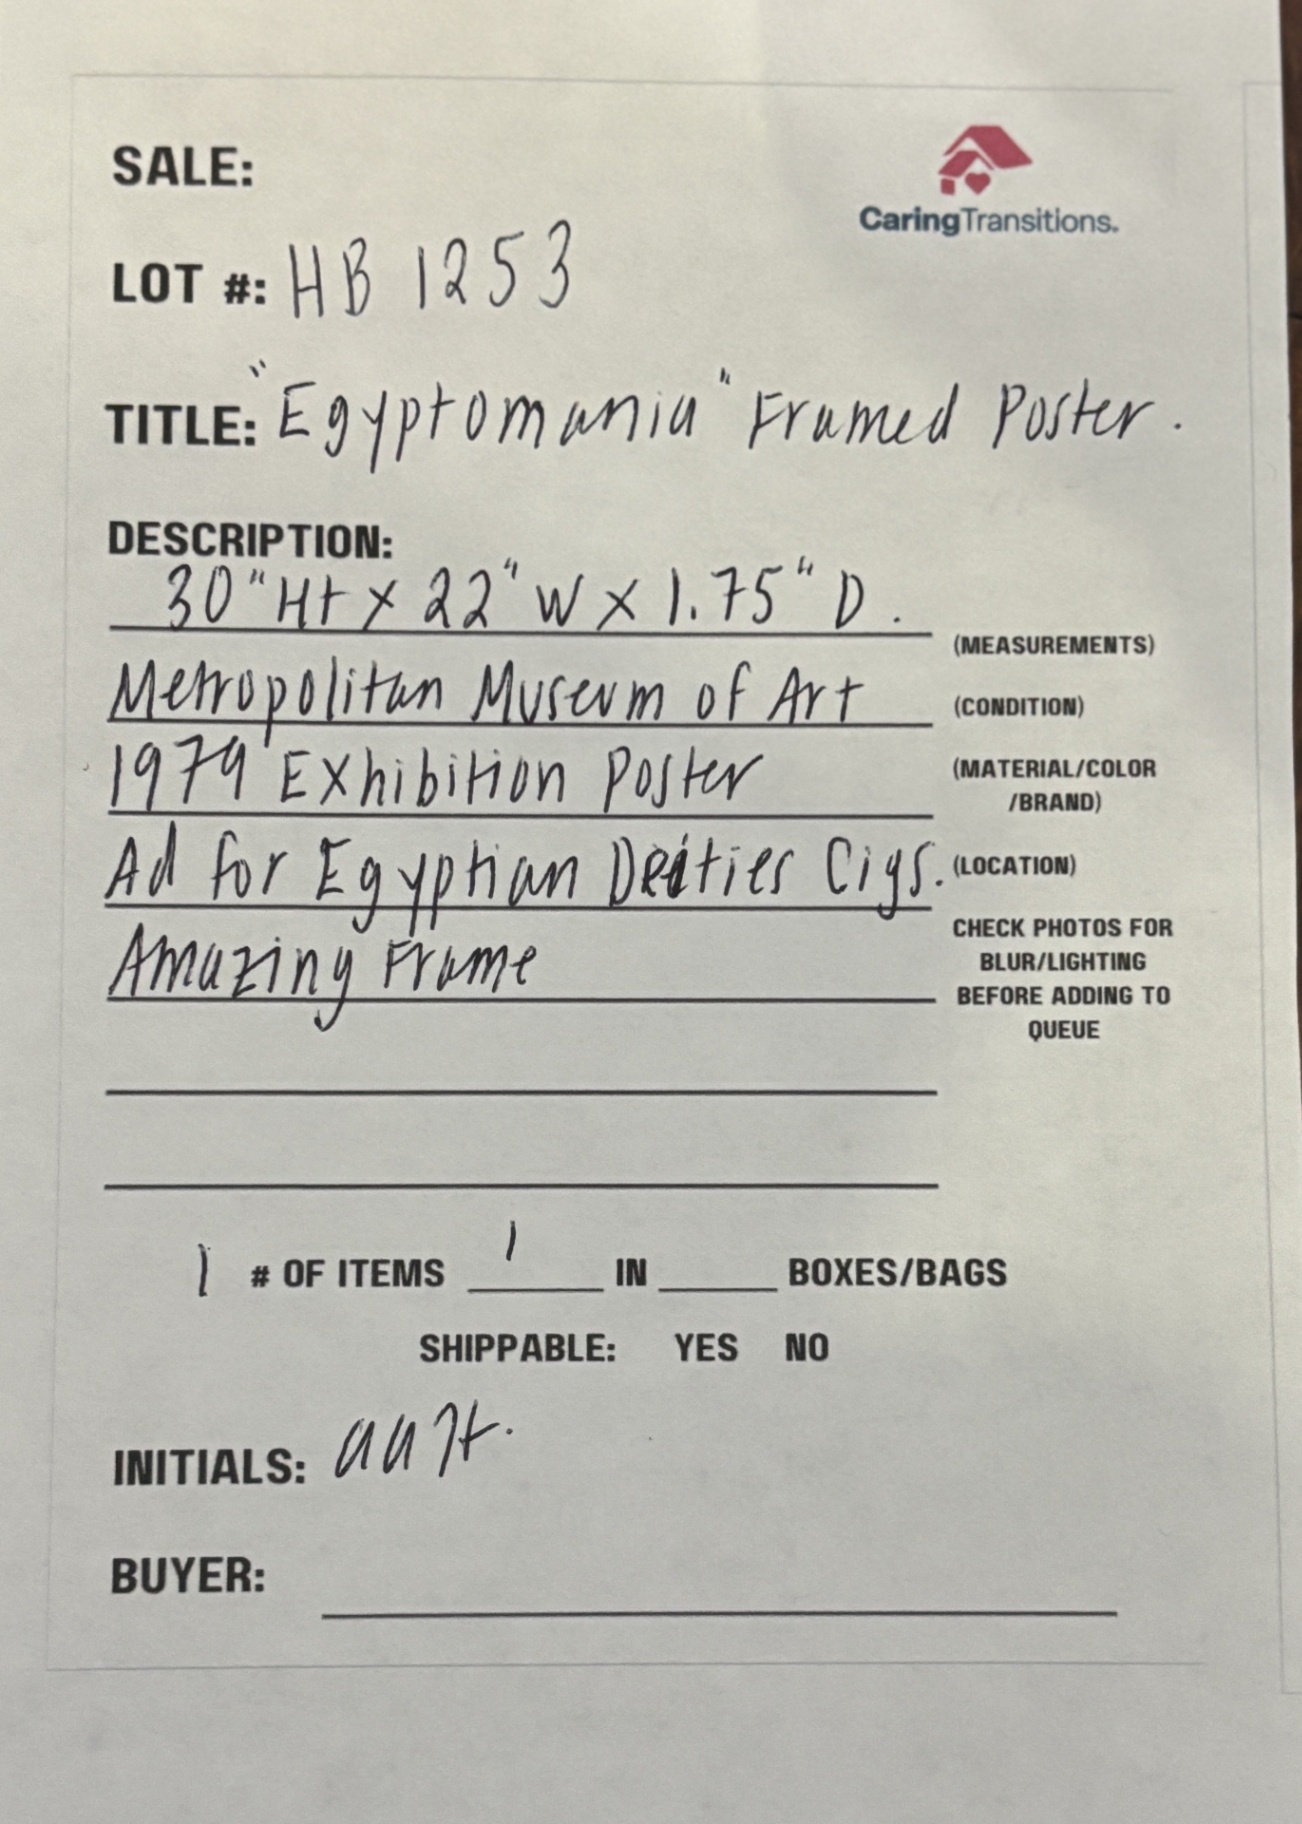 SALE:
CaringTransitions.
LOT #: HB 1253
TITLE: "Egyptomania" Framed Poster.
DESCRIPTION:
30" Ht x 22" W x 1.75" D.
(MEASUREMENTS)
Metropolitan Museum of Art (CONDITION)
1979 Exhibition Poster (MATERIAL/COLOR
/BRAND)
Ad for Egyptian Deities Cigs. (LOCATION)
Amazing Frame
CHECK PHOTOS FOR
BLUR/LIGHTING
BEFORE ADDING TO
QUEUE
1 # OF ITEMS 1 IN BOXES/BAGS
SHIPPABLE: YES NO
INITIALS:
BUYER: